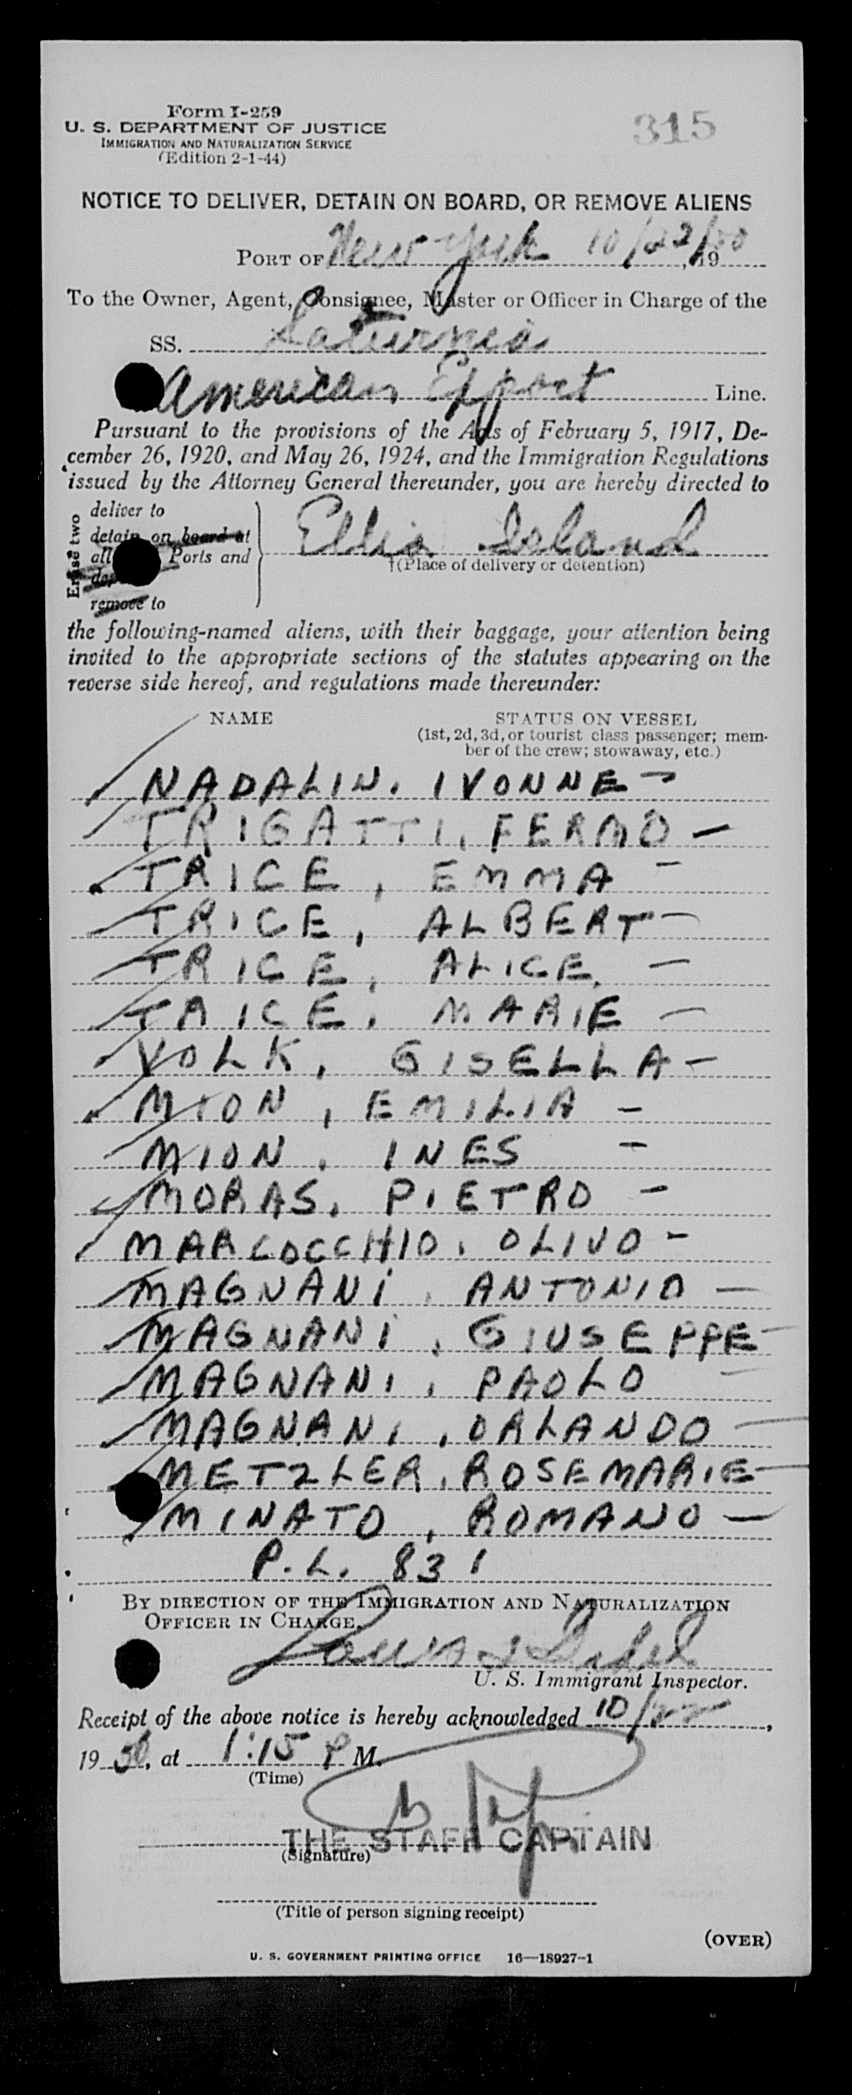 Form I-259
U. S. DEPARTMENT OF JUSTICE
315
IMMIGRATION AND NATURALIZATION SERVICE
(Edition 2-1-44)
NOTICE TO DELIVER, DETAIN ON BOARD, OR REMOVE ALIENS
PORT OF New York 10/22/50, 19
To the Owner, Agent, Consignee, Master or Officer in Charge of the
SS. Saturnia
American Export Line.
Pursuant to the provisions of the Acts of February 5, 1917, De-
cember 26, 1920, and May 26, 1924, and the Immigration Regulations
issued by the Attorney General thereunder, you are hereby directed to
Erase two
deliver to
detain on board at
all Ports and
remove to
Ellis Island
†(Place of delivery or detention)
the following-named aliens, with their baggage, your attention being
invited to the appropriate sections of the statutes appearing on the
reverse side hereof, and regulations made thereunder:
NAME STATUS ON VESSEL
(1st, 2d, 3d, or tourist class passenger; mem-
ber of the crew; stowaway, etc.)
NADALIN. IVONNE -
TRIGATTI, FERMO -
TRICE, EMMA -
TRICE, ALBERT -
TRICE, ALICE. -
TRICE, MARIE -
VOLK, GISELLA -
MION, EMILIA -
MION, INES -
MORAS, PIETRO -
MARCOCCHIO, OLIVO -
MAGNANI, ANTONIO -
MAGNANI, GIUSEPPE -
MAGNANI, PAOLO -
MAGNANI, ORLANDO -
METZLER, ROSEMARIE -
MINATO, ROMANO -
P.L. 831
BY DIRECTION OF THE IMMIGRATION AND NATURALIZATION
OFFICER IN CHARGE.
U. S. Immigrant Inspector.
Receipt of the above notice is hereby acknowledged 10/22,
1950, at 1:15 P M.
(Time)
THE STAFF CAPTAIN
(Signature)
(Title of person signing receipt)
(OVER)
U. S. GOVERNMENT PRINTING OFFICE 16—18927-1